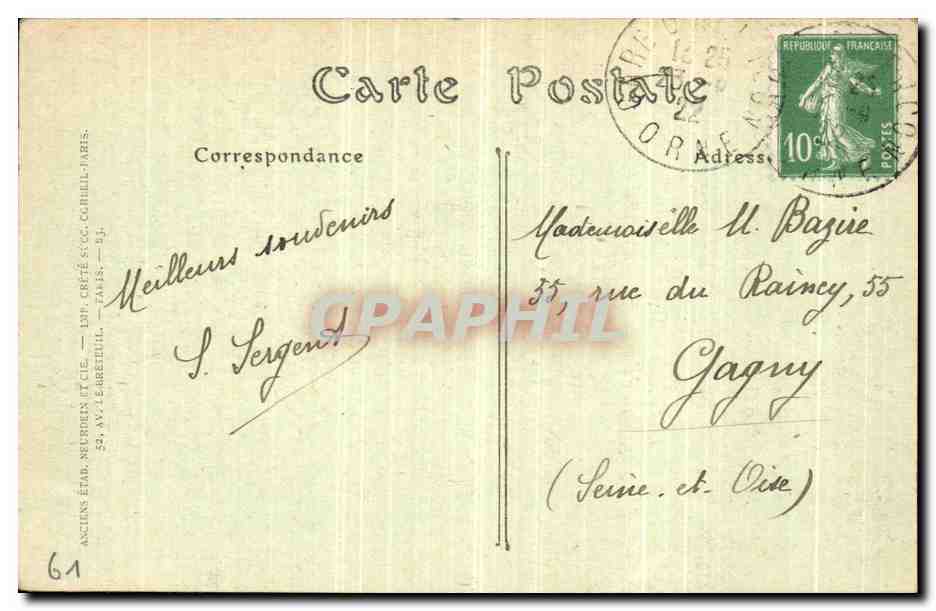 Carte Postale
Correspondance
Adresse
RÉPUBLIQUE FRANÇAISE
10c
POSTES
22
ORNE
Meilleurs souvenirs
S. Sergent
Mademoiselle M. Bazire
55, rue du Raincy, 55
Gagny
(Seine-et-Oise)
CPAPHIL
ANCIENS ÉTAB. NEURDEIN ET CIE. — IMP. CRÉTÉ SUCC. CORBEIL-PARIS.
52, AV. LE BRETEUIL. — PARIS. — BJ.
61